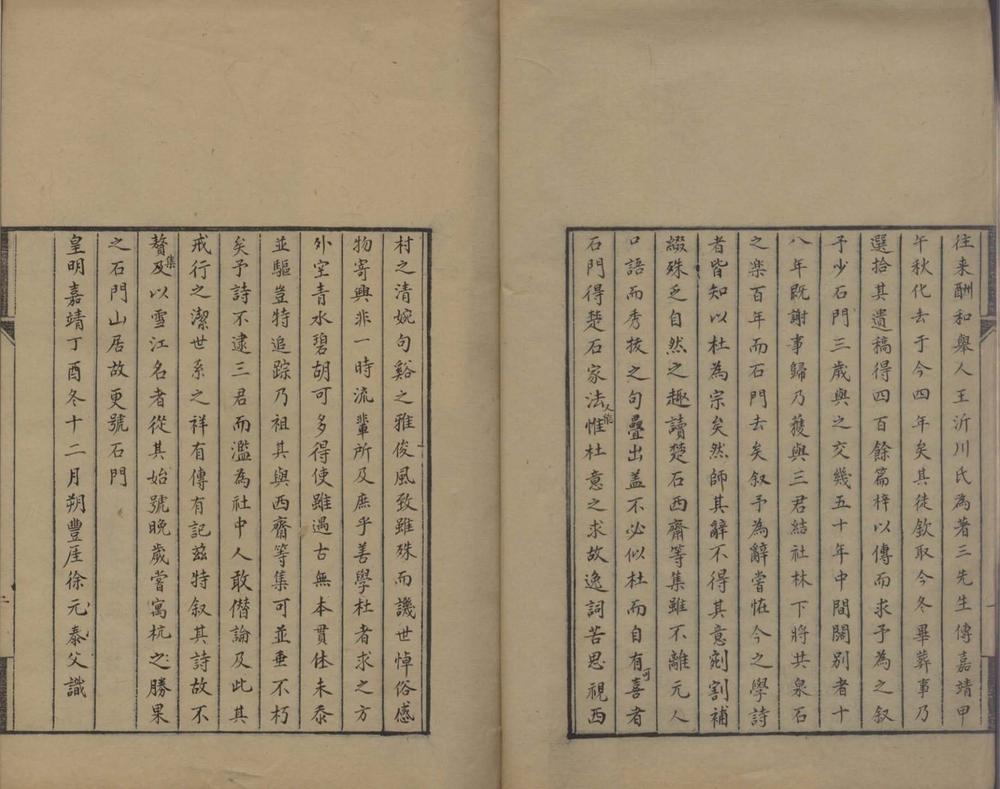 往来酬和舉人王沂川氏為著三先生傳嘉靖甲
午秋化去于今四年矣其徒欽取今冬畢葬事乃
選拾其遺稿得四百餘篇梓以傳而求予為之叙
予少石門三歲與之交幾五十年中間闊別者十
八年既謝事歸乃獲與三君結社林下將共泉石
之楽百年而石門去矣叙予為辭嘗恠今之學詩
者皆知以杜為宗矣然師其辭不得其意剜割補
綴殊乏自然之趣讀楚石西齋等集雖不離元人
口語而秀拔之句疊出盖不必似杜而自有可喜者
石門得楚石家法惟杜意之求故逸詞苦思視西
村之清婉句谿之雅俊風致雖殊而譏世悼俗感
物寄興非一時流輩所及庶乎善學杜者求之方
外空青水碧胡可多得使雖過古無本貫休未泰
並驅豈特追踪乃祖其與西齋等集可並垂不朽
矣予詩不逮三君而濫為社中人敢僭論及此其
戒行之潔世系之祥有傳有記茲特叙其詩故不
贅及集以雪江名者從其始號晚歲嘗寓杭之勝果
之石門山居故更號石門
皇明嘉靖丁酉冬十二月朔豐厓徐元泰父識